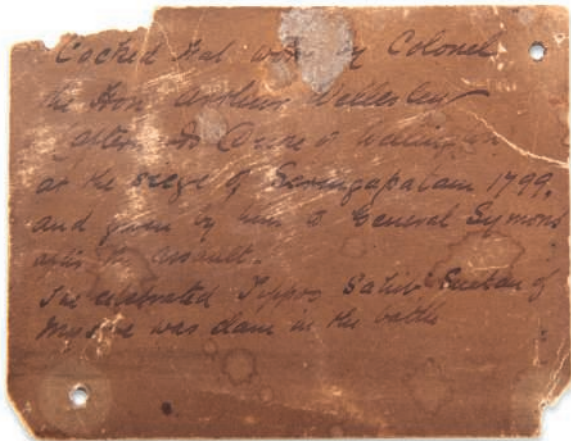 Cocked Hat worn by Colonel
the Hon Arthur Wellesley
after Duke of Wellington
at the siege of Seringapatam 1799,
and given by him to General Symons
after the assault.
The celebrated Tippoo Sahib Sultan of
Mysore was slain in the battle